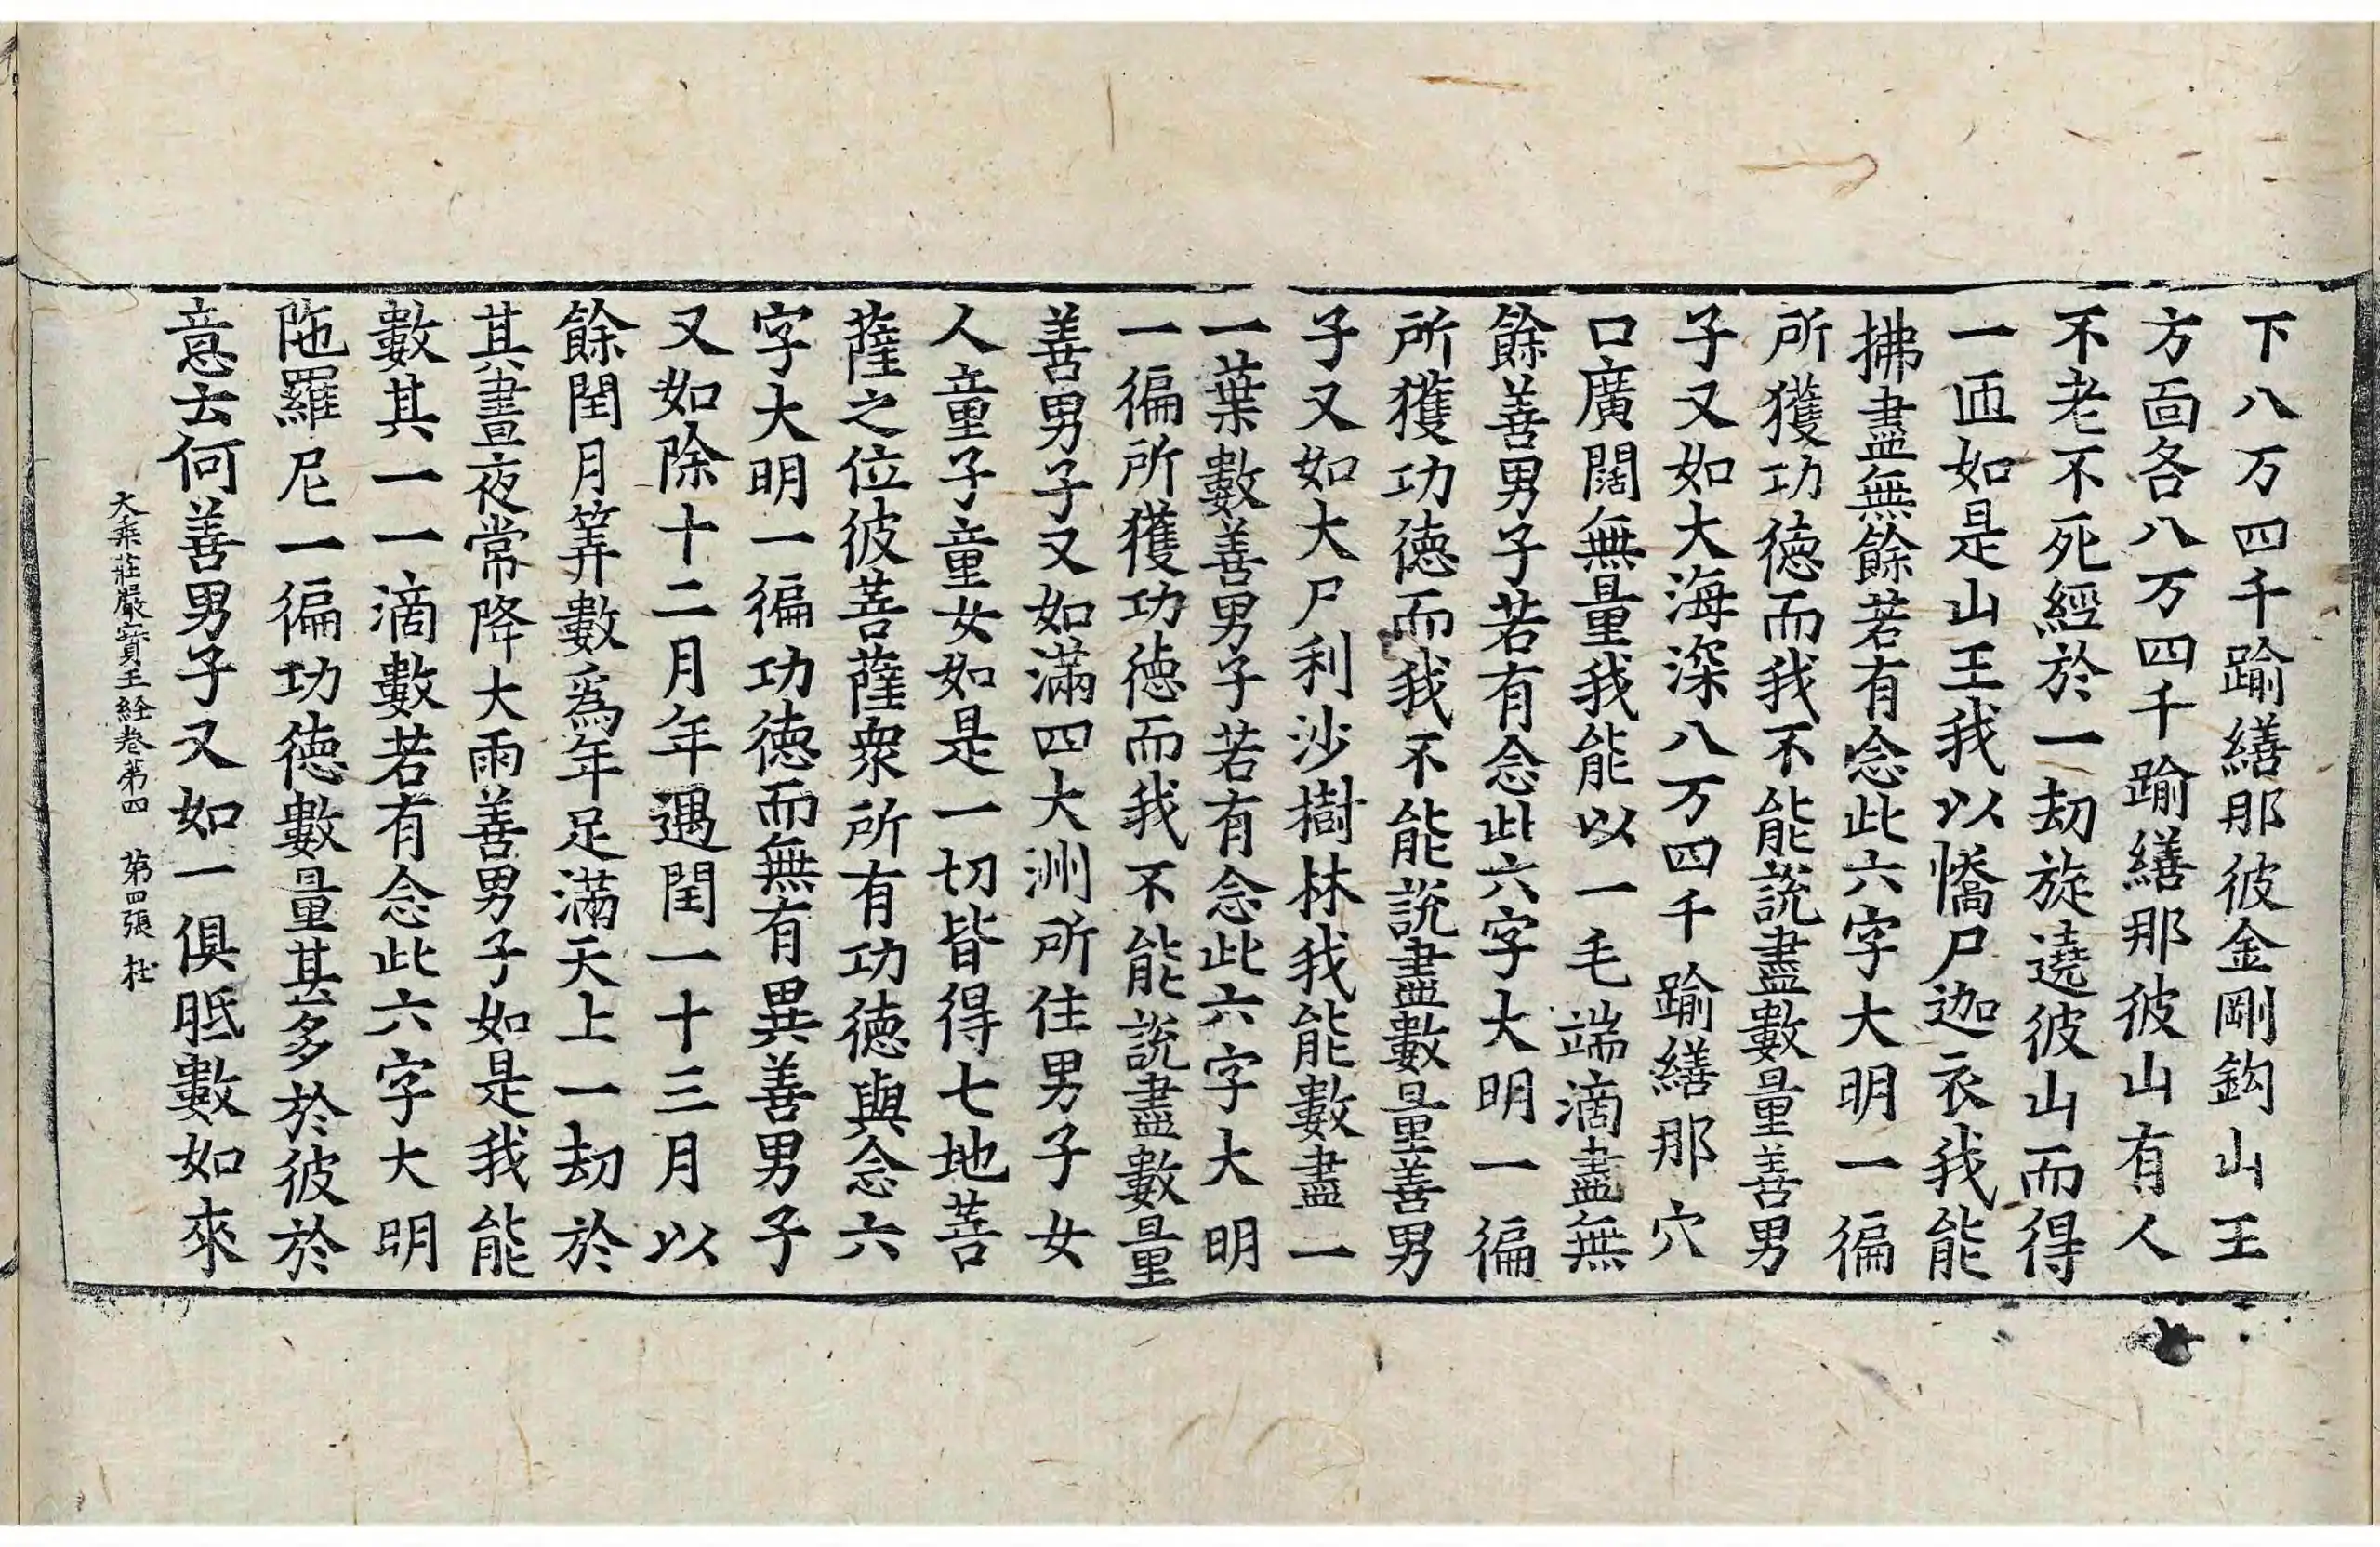 下八万四千踰繕那彼金剛鈎山王
方面各八万四千踰繕那彼山有人
不老不死經於一劫旋遶彼山而得
一帀如是山王我以憍尸迦衣我能
拂盡無餘若有念此六字大明一徧
所獲功德而我不能說盡數量善男
子又如大海深八万四千踰繕那穴
口廣闊無量我能以一毛端滴盡無
餘善男子若有念此六字大明一徧
所獲功德而我不能說盡數量善男
子又如大尸利沙樹林我能數盡一
一葉數善男子若有念此六字大明
一徧所獲功德而我不能說盡數量
善男子又如滿四大洲所住男子女
人童子童女如是一切皆得七地菩
薩之位彼菩薩衆所有功德與念六
字大明一徧功德而無有異善男子
又如除十二月年遇閏一十三月以
餘閏月筭數爲年足滿天上一劫於
其晝夜常降大雨善男子如是我能
數其一一滴數若有念此六字大明
陁羅尼一徧功德數量甚多於彼於
意云何善男子又如一俱胝數如來
大乘莊嚴寶王経卷第四　第四張　杜